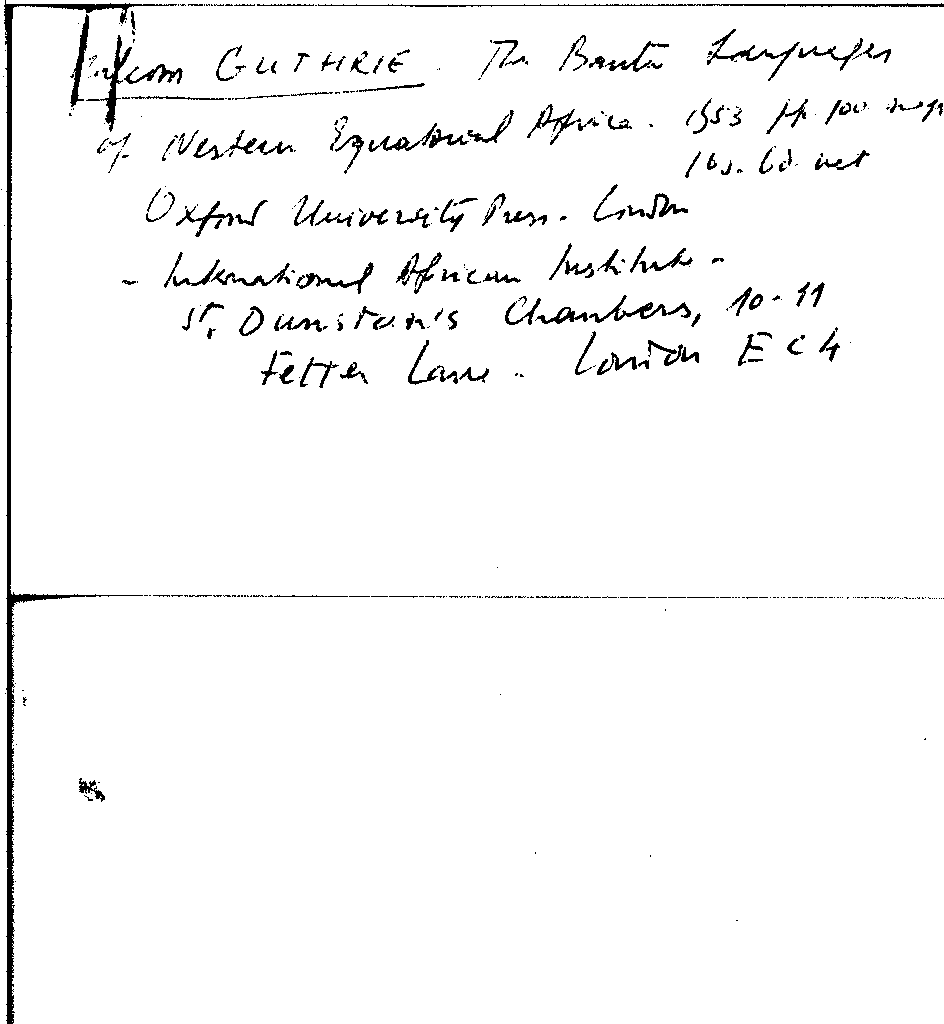 Malcom GUTHRIE. The Bantu Languages
of Western Equatorial Africa. 1953 pp. 100 map
16s. 6d. net
Oxford University Press. London
- International African Institute -
St. Dunstan's Chambers, 10-11
Fetter Lane. London EC4